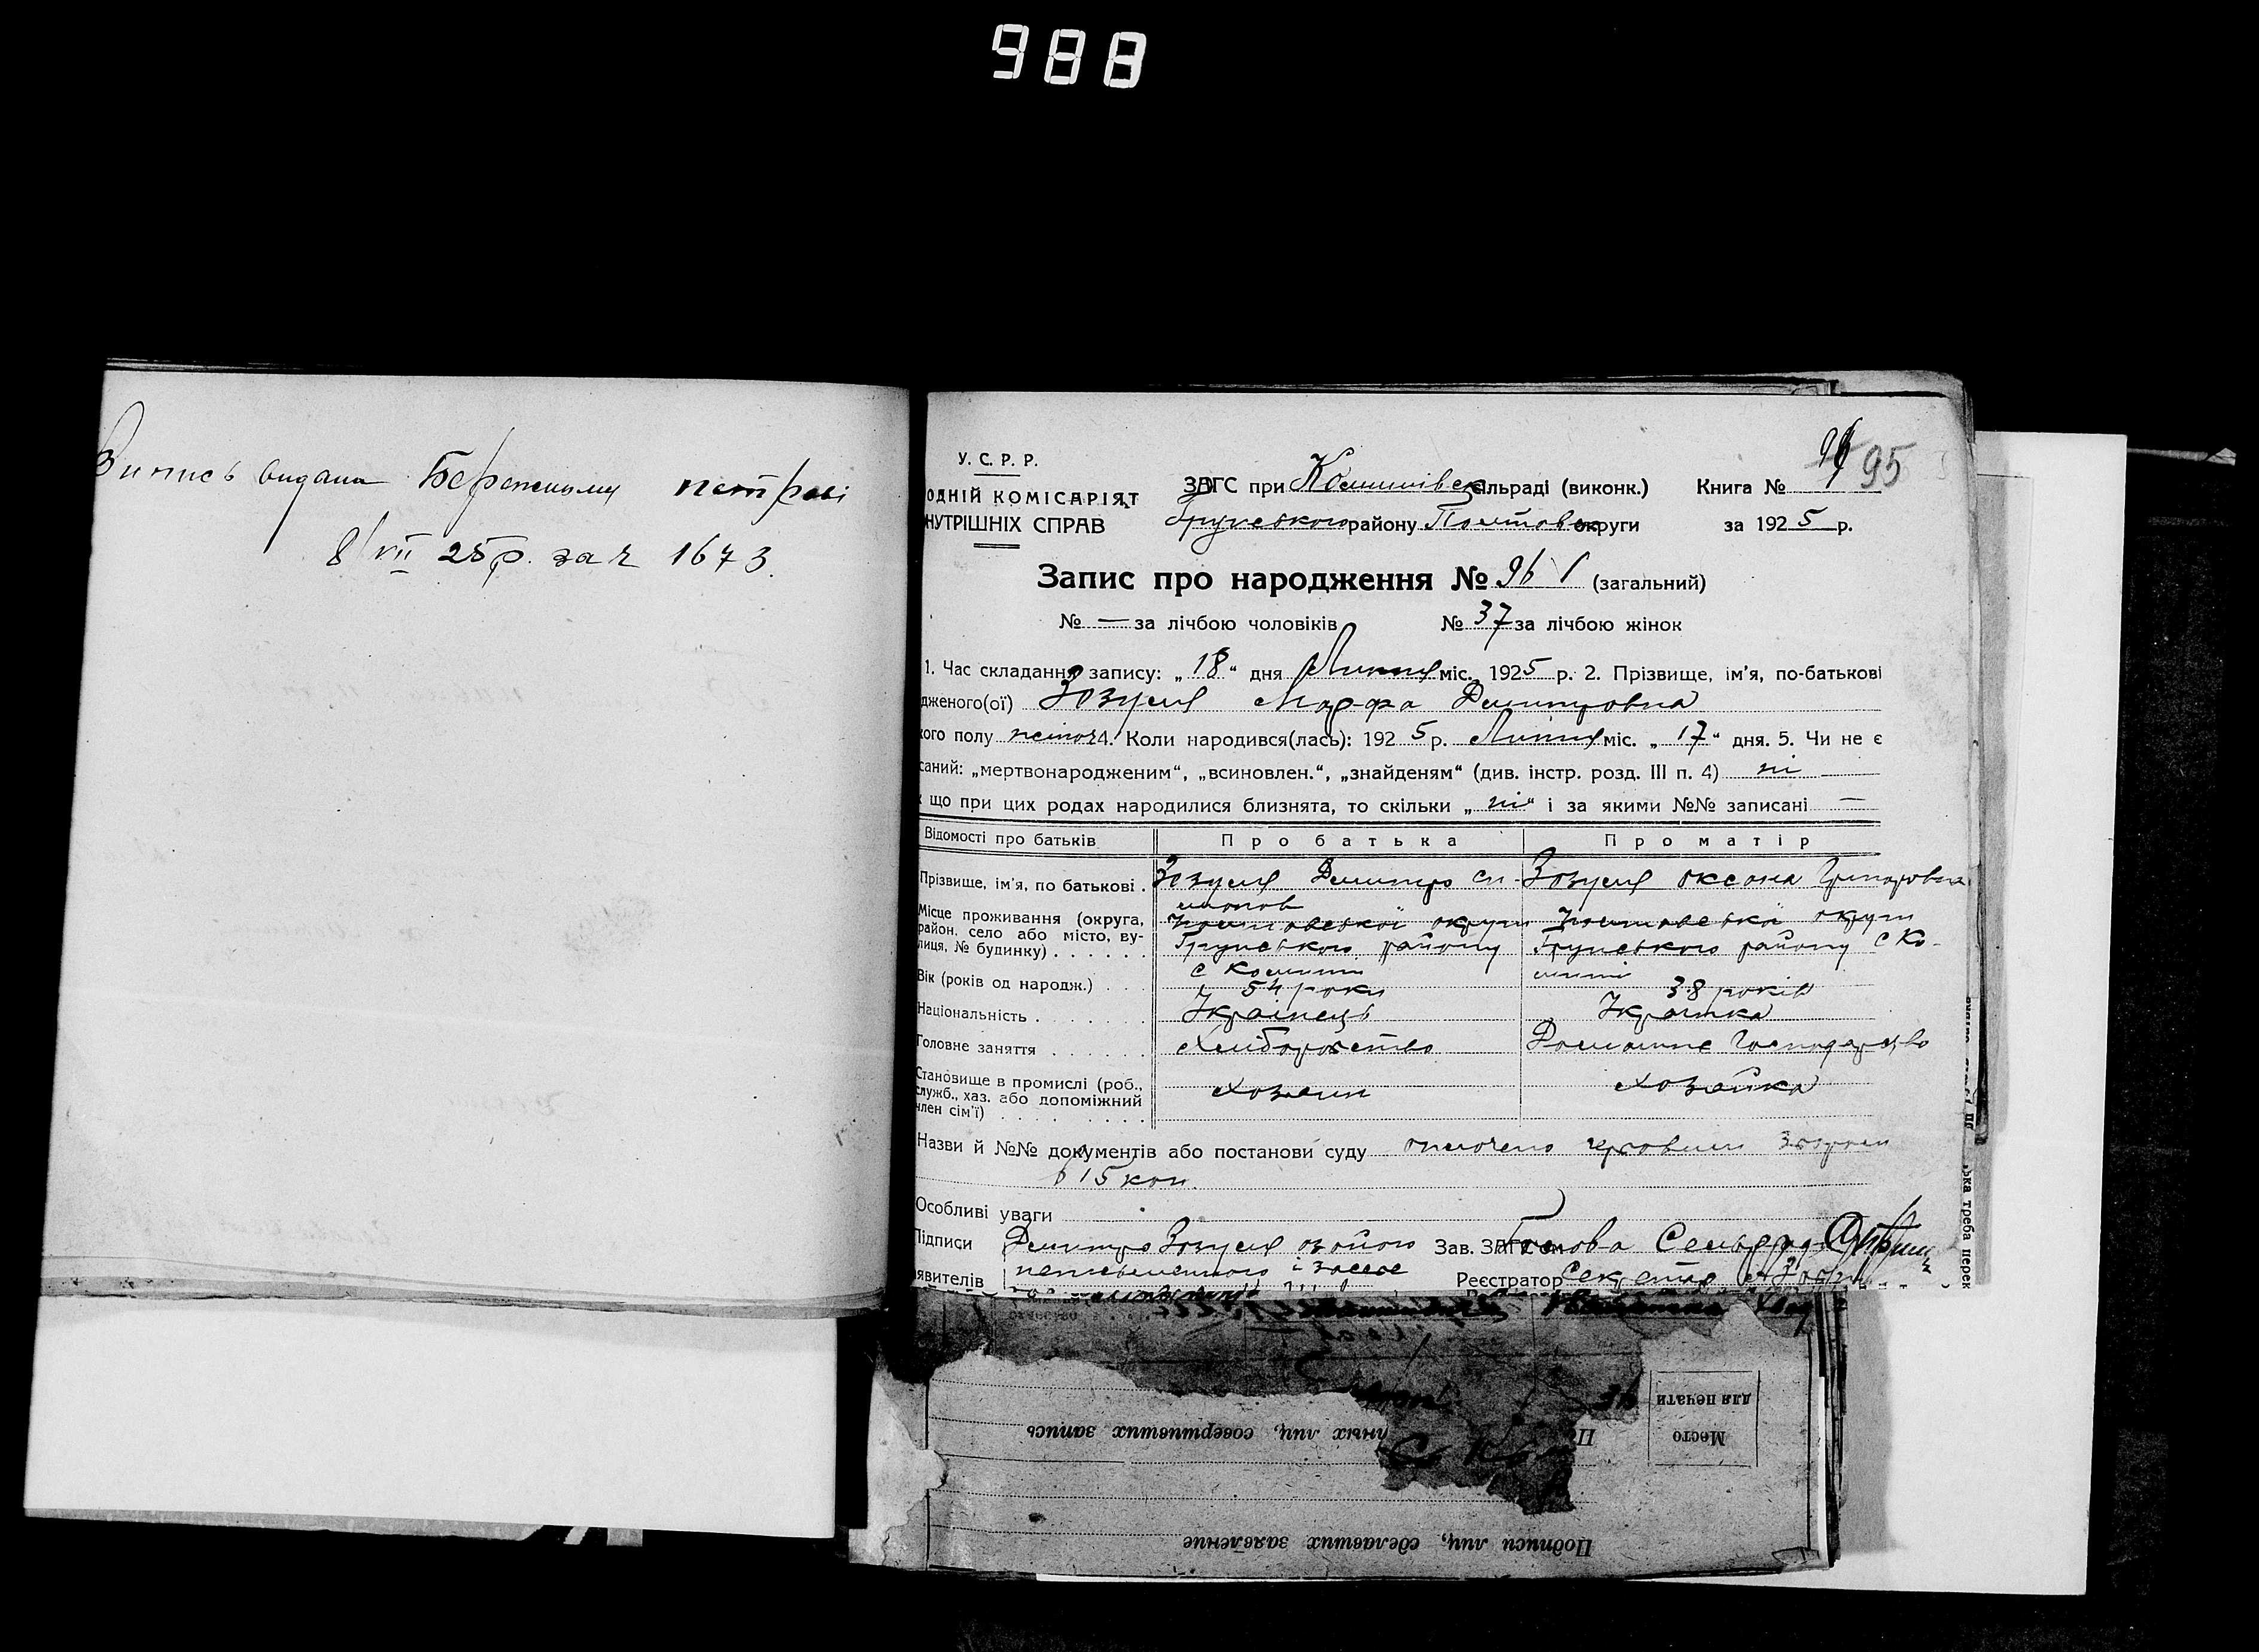 988
Випись видана Бережному петрові
8/VII 25 р. за № 1673.
95
У. С. Р. Р.
ОДНІЙ КОМІСАРІЯТ
НУТРІШНІХ СПРАВ
ЗАГС при Комишівск сільраді (виконк.) Книга №
Грунського району Полтовск округи за 1925 р.
Запис про народження № 96 (загальний)
№ — за лічбою чоловіків № 37 за лічбою жінок
1. Час складання запису: „18“ дня Липня міс. 1925 р. 2. Прізвище, ім'я, по-батькові
дженого(ої) Зозуля Марфа Демитровна
кого полу жіноч 4. Коли народився(лась): 1925 р. Липня міс. „17“ дня. 5. Чи не є
саний: „мертвонародженим“, „всиновлен.“, „знайденям“ (див. інстр. розд. III п. 4) ні —
що при цих родах народилися близнята, то скільки „ні“ і за якими №№ записані —
Відомості про батьків Про батька Про матір
Прізвище, ім'я, по батькові . Зозуля Демитро Зозуля оксана Григоровна
Місце проживання (округа, район, село або місто, вулиця, № будинку) . . . . . .
Полтовської округи
Грунського району
с Комиши
Полтовської округи
Грунського району с Ко-
миші
Вік (років од народж.) . . . 54 роки 38 років
Національність . . . . . . Українець Українка
Головне заняття . . . . . . Хліборобство Домашнє Господарство
Становище в промислі (роб., служб., хаз. або допоміжний член сім'ї) . . . . . . . Хозяин Хозяйка
Назви й №№ документів або постанови суду оплочено гербовим збором
15 коп.
Особливі уваги
Підписи Демитро Зозуля Зав. ЗАГС'ом Голова Сельради
явителів неписьменного і за себе Реєстратор Секретар
ька треба перек
Место
для печати
ных лиц, совершивших запись
Подписи лиц, сделавших заявление